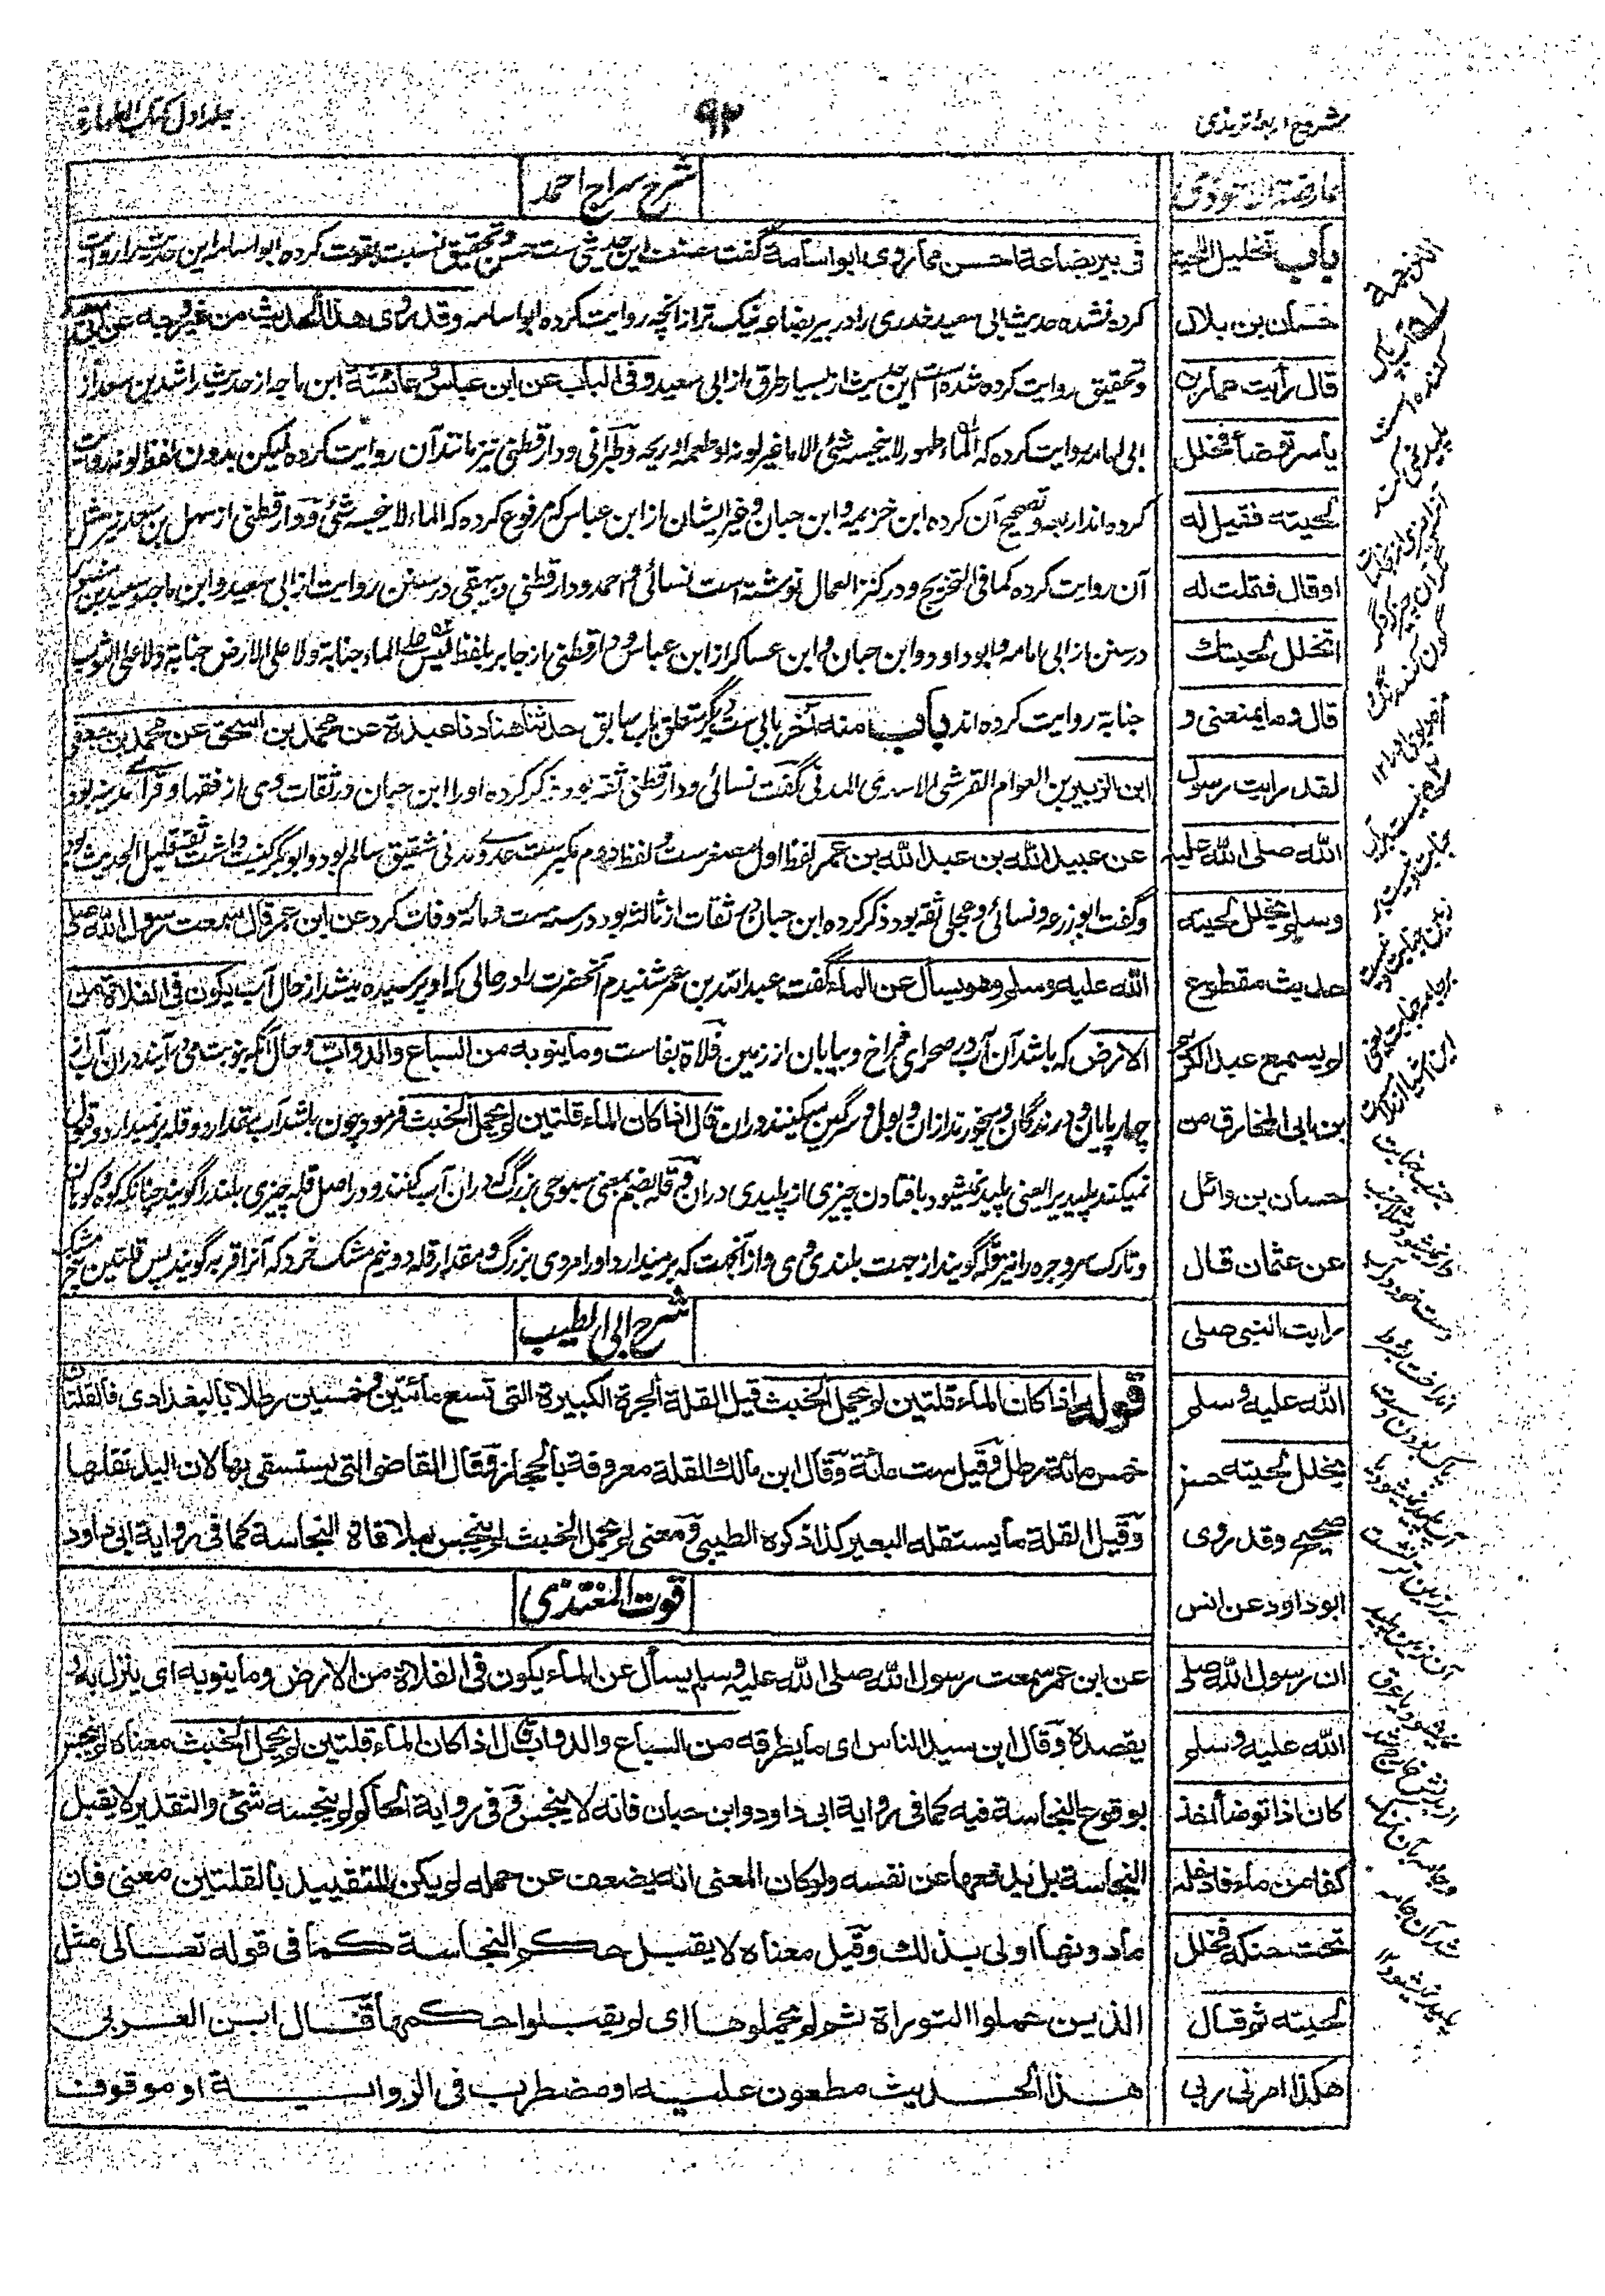 شروح اربعۂ ترمذی
٩٢
جلد اول کتاب الطهارة
عارضة الاحوذی
باب تخلیل اللحیة
حسان بن بلال
قال رأیت عمار بن
یاسر توضأ فخلل
لحیته فقیل له
او قال فقلت له
اتخلل لحیتك
قال وما یمنعنی و
لقد رایت رسول
الله صلی الله علیه
وسلم یخلل لحیته
حدیث مقطوع
لم یسمع عبد الکریم
بن ابی المخارق من
حسان بن وائل
عن عثمان قال
رایت النبی صلی
الله علیه وسلم
یخلل لحیته حسن
صحیح وقد روی
ابو داود عن انس
ان رسول الله صلی
الله علیه وسلم
کان اذا توضأ اخذ
کفا من ماء فادخله
تحت حنکه فخلل
لحیته ثم قال
هکذا امرنی ربی
شرح سراج احمد
فی بیر بضاعة احسن مما روی ابو اسامة گفت مصنف این حدیثی ست حسن و تحقیق نسبت بقوت کرده ابو اسامه این حدیث را روایت
کرده نشده حدیث ابی سعید خدری را در بیر بضاعه نیک تر ازانچه روایت کرده ابو اسامه وقد روی هذا الحدیث من غیر وجه عن ابی سعید
و تحقیق روایت کرده شده است این حدیث از بسیار طرق از ابی سعید وفی الباب عن ابن عباس وعائشة ابن ماجه از حدیث راشد بن سعد از
ابی امامه روایت کرده که الماء طهور لا ینجسه شئ الا ما غیر لونه او طعمه او ریحه و طبرانی و دارقطنی نیز مانند آن روایت کرده لیکن بدون لفظ لونه روایت
کرده اند اربعه و تصحیح آن کرده ابن خزیمه و ابن حبان و غیر ایشان از ابن عباس که مرفوع کرده که الماء لا ینجسه شئ و دارقطنی از سهل بن سعد نیز مثل
آن روایت کرده کما فی التخریج و در کنز العمال نوشته است نسائی و احمد و دارقطنی و بیهقی در سنن روایت از ابی سعید و ابن ماجه و سعید بن منصور
در سنن از ابی امامه و ابو داود و ابن حبان و ابن عساکر از ابن عباس و دارقطنی از جابر بلفظ لیس علی الماء جنابة ولا علی الارض جنابة ولا علی الثوب
جنابة روایت کرده اند باب منه آخر بابی ست دیگر متعلق باب سابق حدثنا هناد نا عبدة عن محمد بن اسحق عن محمد بن جعفر
ابن الزبیر بن العوام القرشی الاسدی المدنی گفت نسائی و دارقطنی ثقه بود ذکر کرده او را ابن حبان در ثقات وی از فقها و قرآی مدینه بود
عن عبید الله بن عبد الله بن عمر لفظ اول مصغرست و لفظ دوم مکبرست عدوی مدنی شقیق سالم بود و ابو بکر کنیت داشت ثقة قلیل الحدیث بود
و گفت ابو زرعه و نسائی و عجلی ثقه بود ذکر کرده ابن حبان در ثقات از ثالثه بود در سنه ست و مائة وفات کرد عن ابن عمر قال سمعت رسول الله صلی
الله علیه وسلم وهو یسأل عن الماء گفت عبد الله بن عمر شنیدم آنحضرت را در حالی که او پرسیده میشد از حال آب یکون فی الفلاة من
الارض که باشد آن آب در صحرای فراخ و بیابان از زمین فلاة بفاست وما ینوبه من السباع والدواب و حال آنکه نوبت می آیند دران آب از
چهارپایان و درندگان و میخورند ازان و بول و سرگین میکنند دران قال اذا کان الماء قلتین لم یحمل الخبث فرمود چون باشد آب بمقدار دو قله بر نمیدارد و قبول
نمیکند پلید یرا یعنی پلید نمیشود بافتادن چیزی از پلیدی دران و قله بضم بمعنی سبوی بزرگ که دران آب کنند و در اصل قله چیزی بلند را گویند چنانکه کوه و کوهان
و تارک سر وجره را نیز قله گویند از جهت بلندی وی و از آنجهت که بر میدارد او را مردی بزرگ و مقدار قله دو نیم مشک خرد که آنرا قربه گویند پس قلتین پنج مشک
شرح ابی الطیب
قوله اذا کان الماء قلتین لم یحمل الخبث قیل القلة الجرة الکبیرة التی تسع مائتین وخمسین رطلا بالبغدادی فالقلتان
خمس مائة رطل وقیل ست مائة وقال ابن مالك القلة معروفة بالحجاز وقال القاضی التی یستسقی بها لان الید تقلها
وقیل القلة ما یستقله البعیر کذا ذکره الطیبی ومعنی لم یحمل الخبث لم ینجس بملاقاة النجاسة کما فی روایة ابی داود
قوت المغتذی
عن ابن عمر سمعت رسول الله صلی الله علیه وسلم یسأل عن الماء یکون فی الفلاة من الارض وما ینوبه ای ینزل به و
یقصده وقال ابن سید الناس ای ما یطرقه من السباع والدواب قال اذا کان الماء قلتین لم یحمل الخبث معناه لم ینجس
بوقوع النجاسة فیه کما فی روایة ابی داود وابن حبان فانه لا ینجس وفی روایة الحاکم لم ینجسه شئ والتقدیر لا یقبل
النجاسة بل یدفعها عن نفسه ولو کان المعنی انه یضعف عن حمله لم یکن للتقیید بالقلتین معنی فان
ما دونها اولی بذلك وقیل معناه لا یقبل حکم النجاسة کما فی قوله تعالی مثل
الذین حملوا التوراة ثم لم یحملوها ای لم یقبلوا حکمها قال ابن العربی
هذا الحدیث مطعون علیه او مضطرب فی الروایة او موقوف